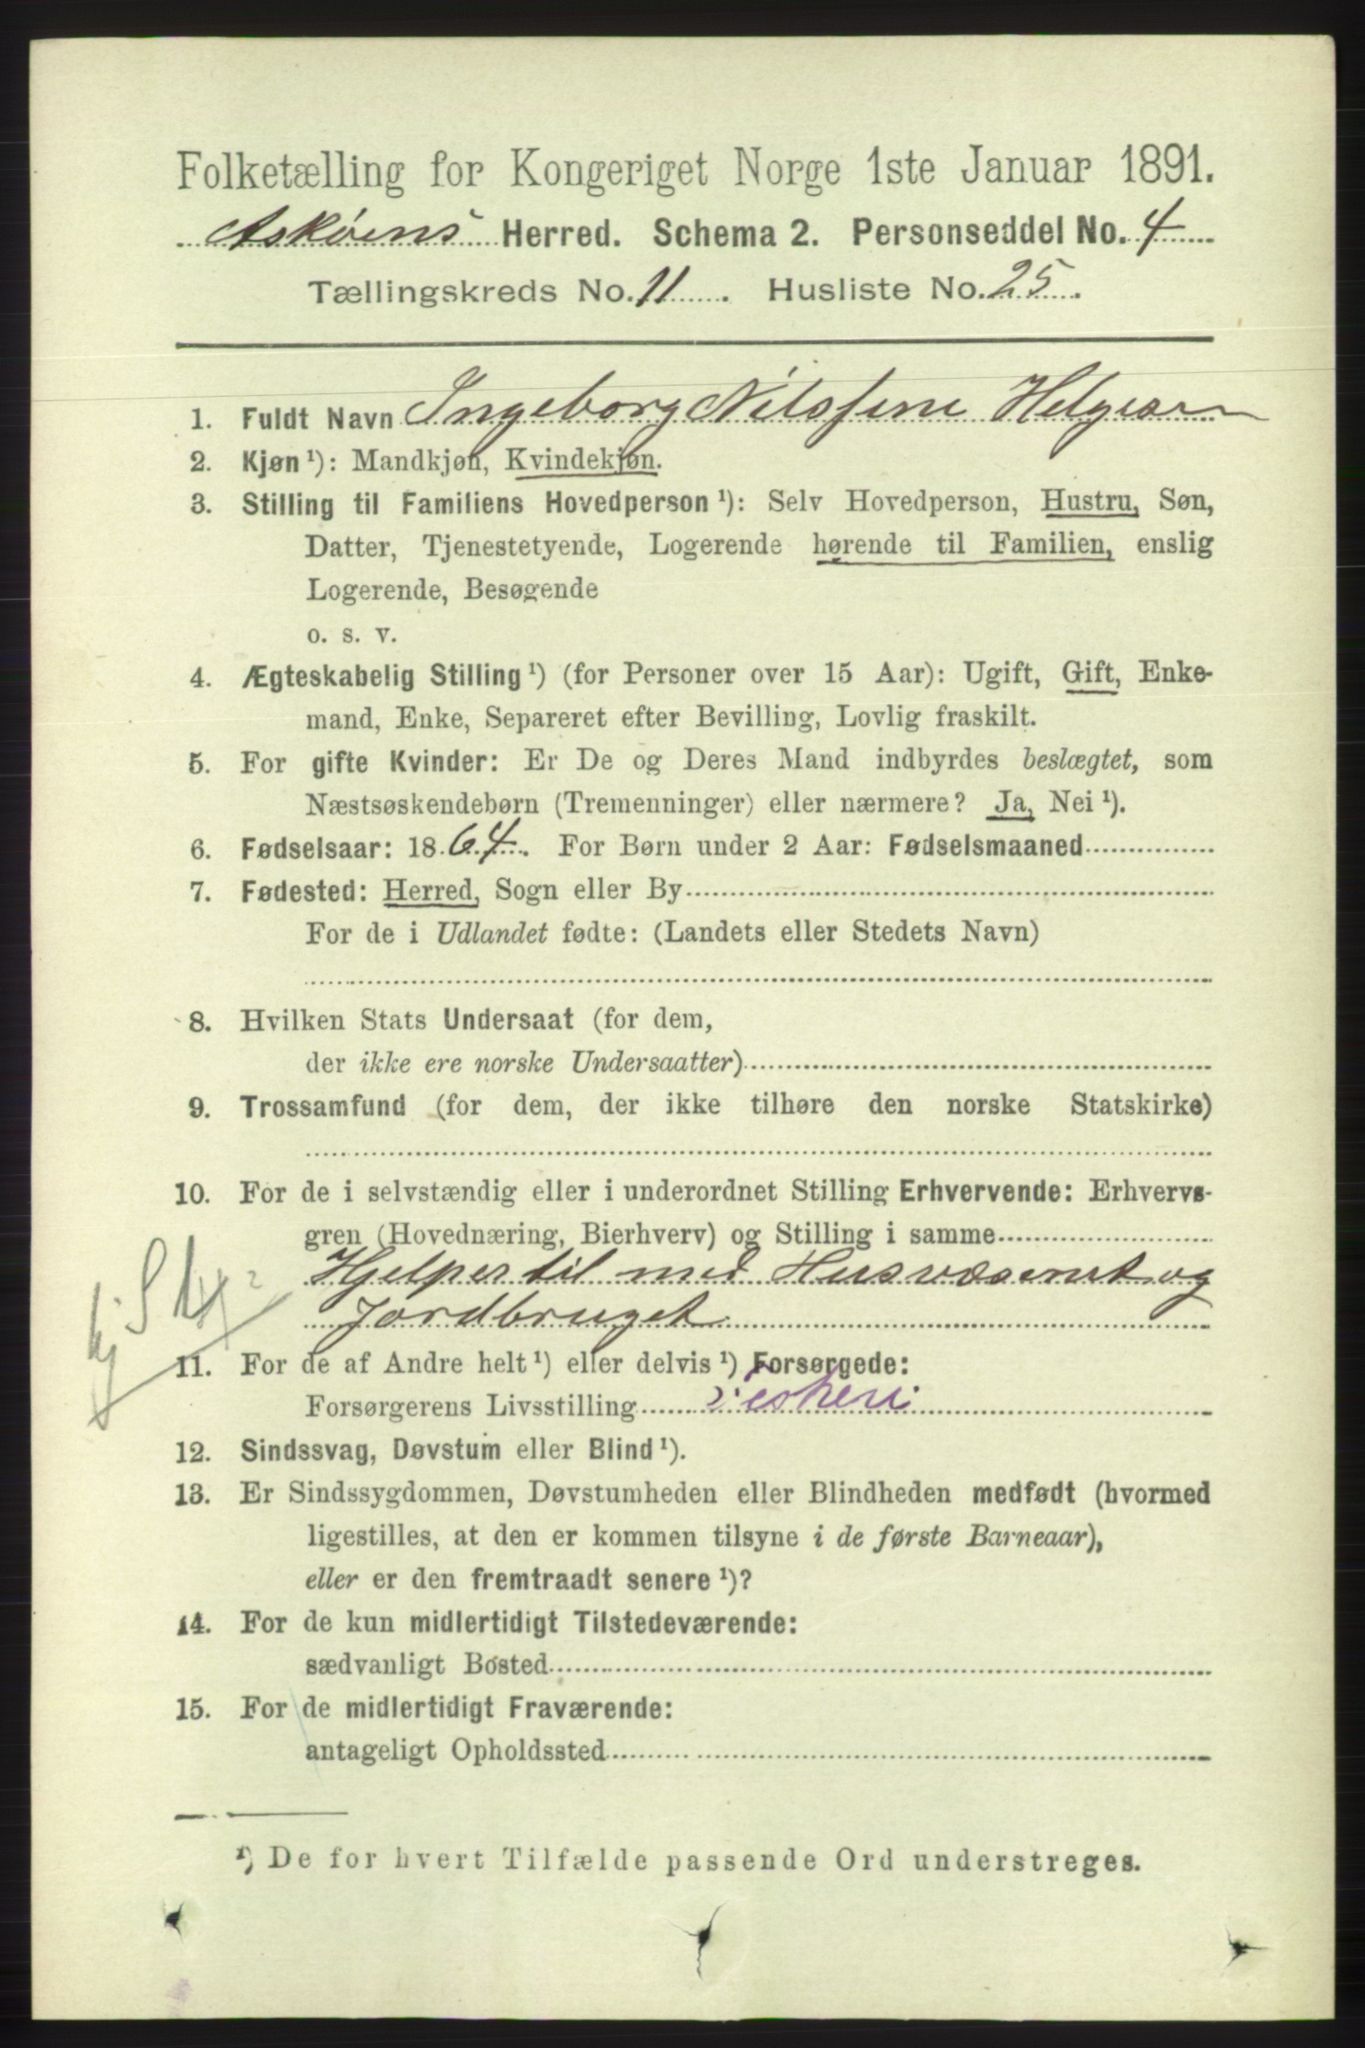 Folketælling for Kongeriget Norge 1ste Januar 1891.
Askøens Herred. Schema 2. Personseddel No. 4
Tællingskreds No. 11. Husliste No. 25.
1. Fuldt Navn Ingeborg Nilsine Helgesen
2. Kjøn ¹): Mandkjøn, Kvindekjøn.
3. Stilling til Familiens Hovedperson ¹): Selv Hovedperson, Hustru, Søn,
Datter, Tjenestetyende, Logerende hørende til Familien, enslig
Logerende, Besøgende
o. s. v.
4. Ægteskabelig Stilling ¹) (for Personer over 15 Aar): Ugift, Gift, Enke-
mand, Enke, Separeret efter Bevilling, Lovlig fraskilt.
5. For gifte Kvinder: Er De og Deres Mand indbyrdes beslægtet, som
Næstsøskendebørn (Tremenninger) eller nærmere? Ja, Nei ¹).
6. Fødselsaar: 1864. For Børn under 2 Aar: Fødselsmaaned
7. Fødested: Herred, Sogn eller By
For de i Udlandet fødte: (Landets eller Stedets Navn)
8. Hvilken Stats Undersaat (for dem,
der ikke ere norske Undersaatter)
9. Trossamfund (for dem, der ikke tilhøre den norske Statskirke)
10. For de i selvstændig eller i underordnet Stilling Erhvervende: Erhvervs-
gren (Hovednæring, Bierhverv) og Stilling i samme
Hjelper til med Husvæsenet og
Jordbruget
11. For de af Andre helt ¹) eller delvis ¹) Forsørgede:
Forsørgerens Livsstilling Fiskeri
12. Sindssvag, Døvstum eller Blind ¹).
13. Er Sindssygdommen, Døvstumheden eller Blindheden medfødt (hvormed
ligestilles, at den er kommen tilsyne i de første Barneaar),
eller er den fremtraadt senere ¹)?
14. For de kun midlertidigt Tilstedeværende:
sædvanligt Bosted
15. For de midlertidigt Fraværende:
antageligt Opholdssted
¹) De for hvert Tilfælde passende Ord understreges.